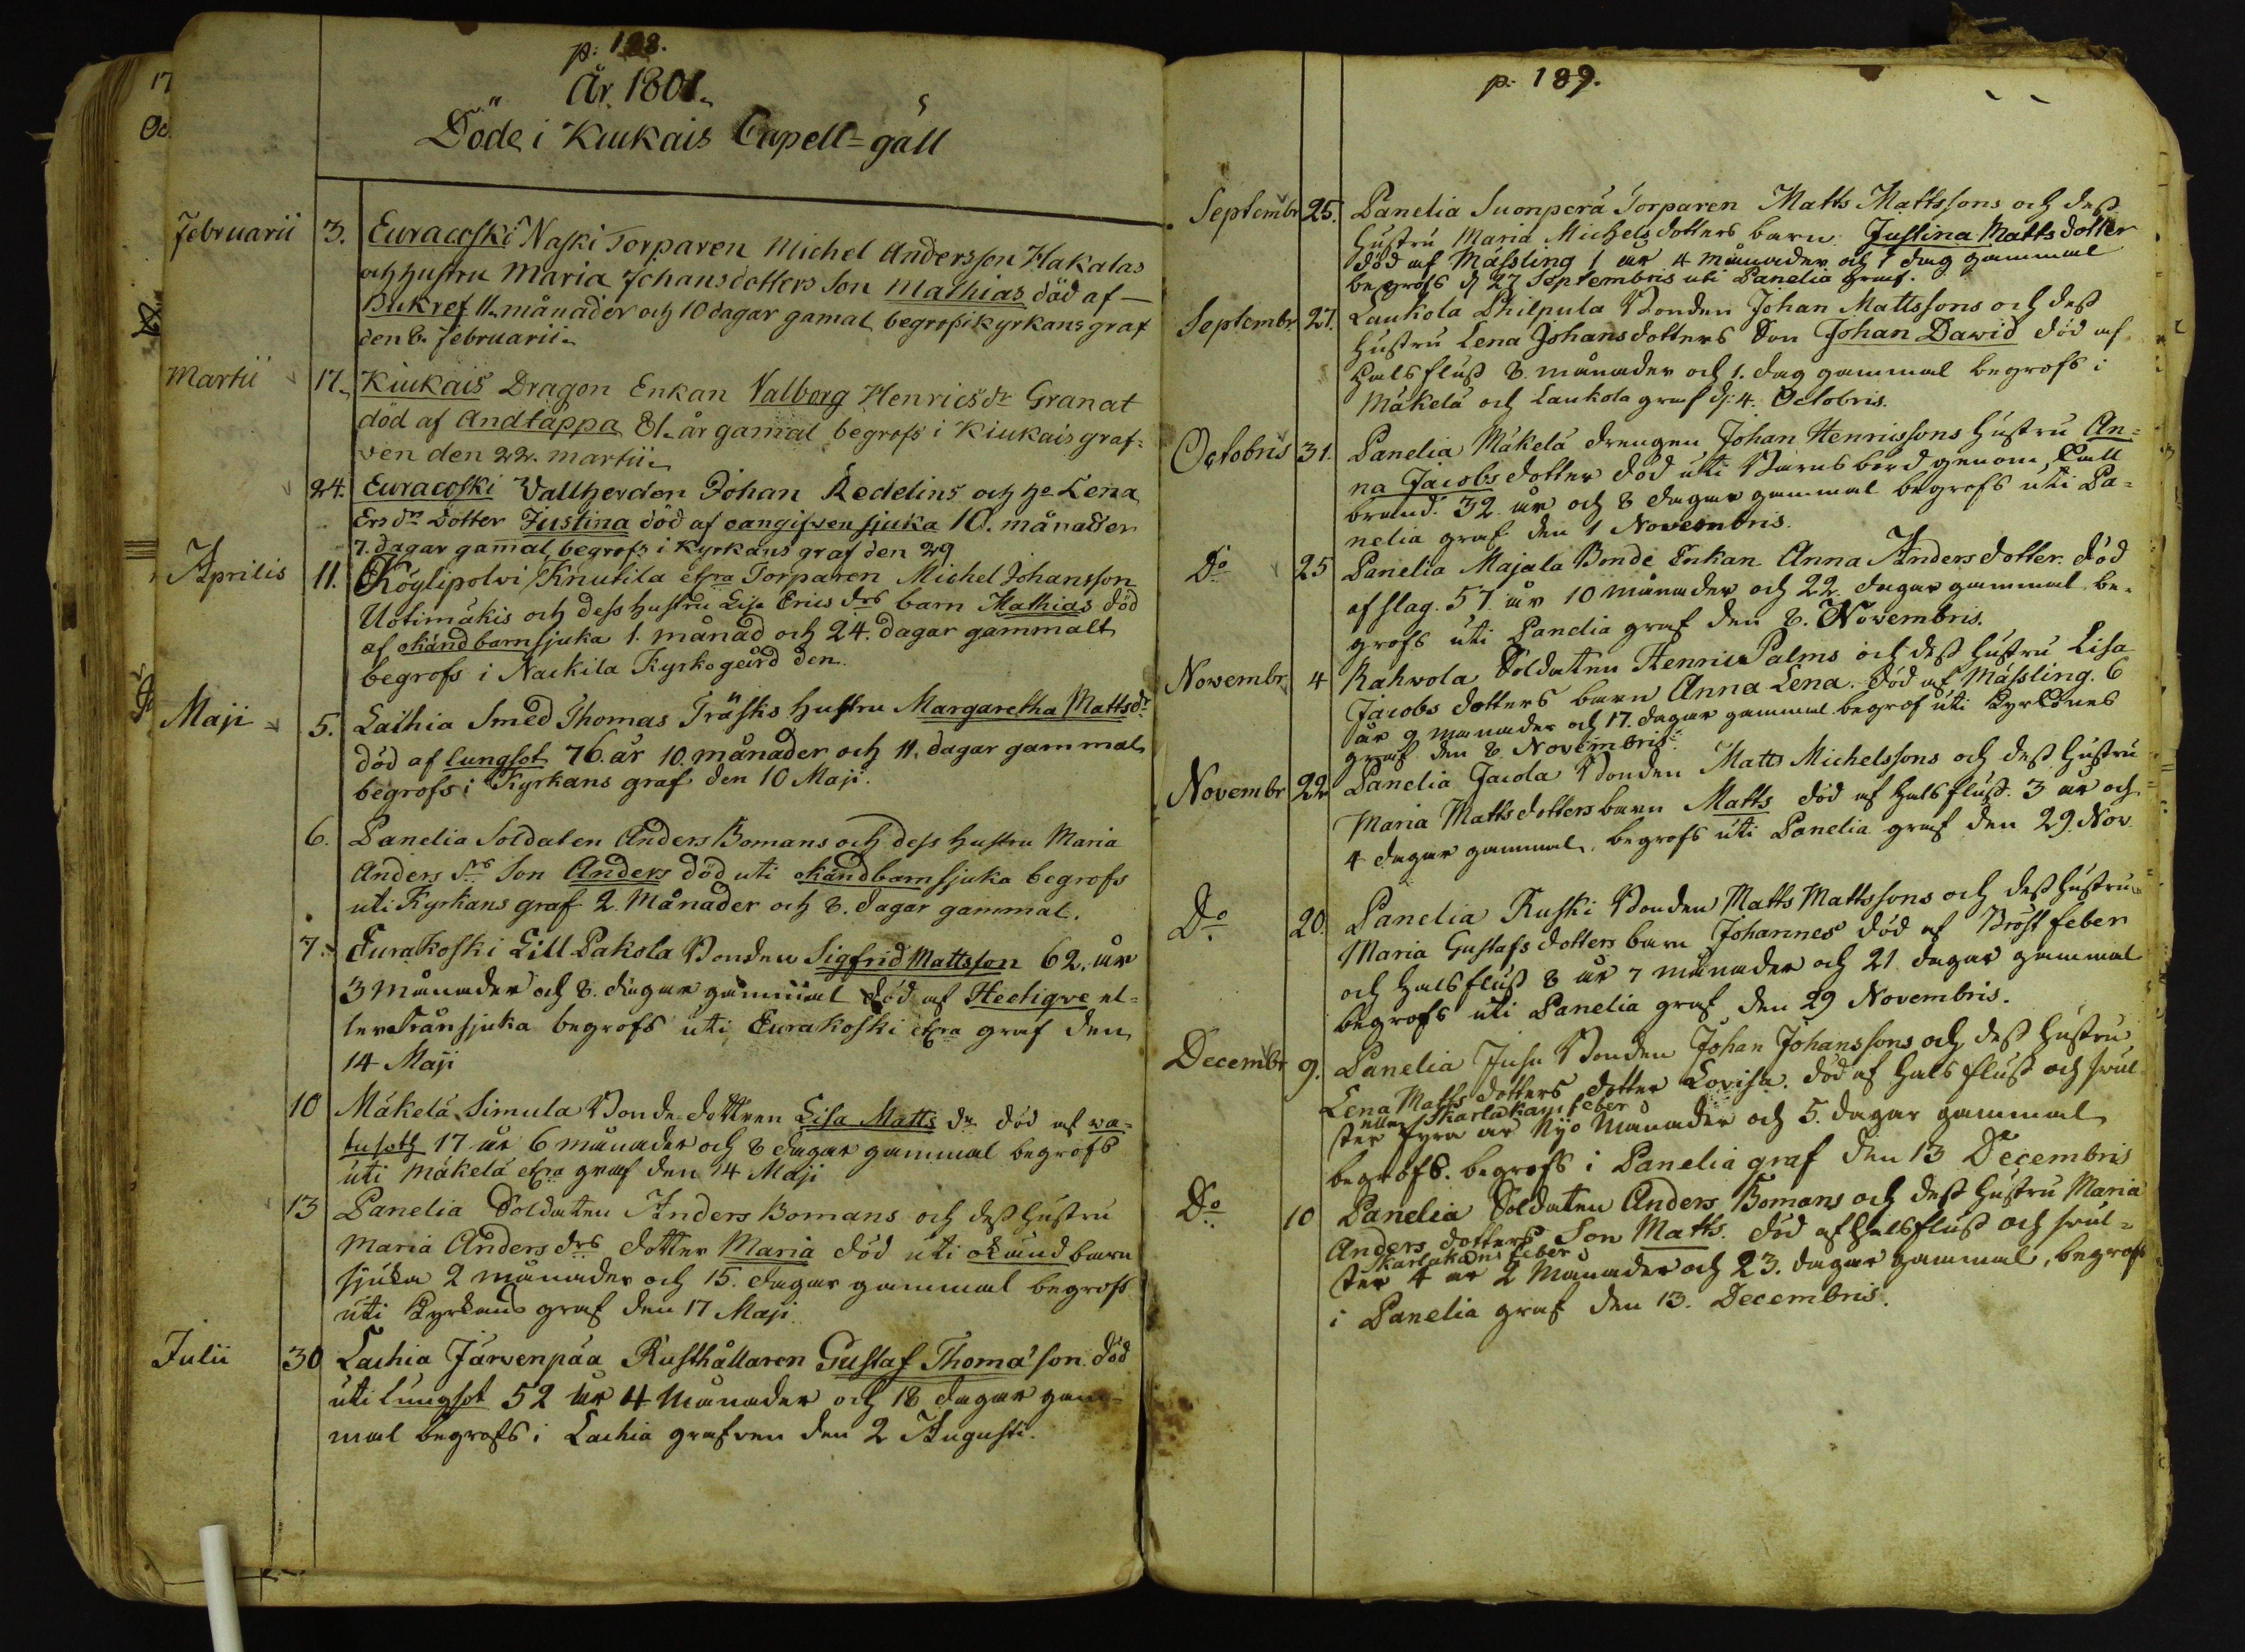 p: 188.
År 1801.
Döde i Kiukais Capell=gäll
Februarii 3. Euracoski Naski Torparen Michel Andersson Hakalas
och hustru Maria Johansdotters Son Mathias död af —
Bukref 11. månader och 10 dagar gamal begrofs i kyrkans graf
den 8. Februarii.
Martii 17. Kiukais Dragon Enkan Valborg Henricsdr Granat
död af Andtäppa 81. år gamal begrofs i Kiukais graf=
ven den 22. Martii.
24. Euracoski Vallherden Johan Redelins och h. Lena
Ersdrs Dotter Justina död af oangifven sjuka 10. månader
7. dagar gamal begrofs i Kyrkans graf den 29
Aprilis 11. Köylipolvi Knutila Torparen Michel Johansson
Uotimäkis och dess hustru Lisa Erics drs barn Mathias död
af okänd barnsjuka 1. månad och 24. dagar gammalt
begrofs i Nackila Kyrkogård den
Maji 5. Laihia Smed Thomas Träsks hustru Margaretha Mattsdr
död af lungsot 76. år 10. månader och 11. dagar gammal
begrofs i Kyrkans graf den 10 Maji.
6. Panelia Soldaten Anders Bomans och dess hustru Maria
Anders drs Son Anders död uti okändbarnsjuka begrofs
uti Kyrkans graf 2. Månader och 8. dagar gammal.
7. Eurakoski Lill Pakola Bonden Sigfrid Mattsson 62. år
3 Månader och 8. dagar gammal död af Hectique el=
ler Trånsjuka begrofs uti Eurakoski graf den
14 Maji
10 Mäkelä Simula Bonde dottren Lisa Matts dr död af va=
tusoth 17 år 6 månader och 8 dagar gammal begrofs
uti Mäkelä graf den 14 Maji
13 Panelia Soldaten Anders Bomans och dess hustru
Maria Anders drs dotter Maria död uti okänd barn
sjuka 2 månader och 15. dagar gammal begrofs
uti Kyrkans graf den 17 Maji.
Julii 30 Lachia Järvenpää Rusthållaren Gustaf Thomas'son död
uti lungsot 52 år 4 Månader och 18 dagar gam=
mal begrofs i Lachia grafven den 2 Augusti.
p. 189.
Septembr 25. Panelia Suonperä Torparen Matts Mattssons och dess
hustru Maria Michelsdotters barn Justina Mattsdotter
död af Mässling 1 år 4 månader och 1 dag gammal
begrofs d 27 Septembris uti Panelia graf.
Septembr 27. Laukola Philpula Bonden Johan Mattssons och dess
hustru Lena Johansdotters Son Johan Dawid död af
halsfluss 8. månader och 1. dag gammal begrofs i
Mäkelä och Laukola graf d: 4. Octobris.
Octobris 31. Panelia Mäkelä drengen Johan Henricssons hustru An=
na Jacobsdotter död uti Barnsbörd genom Kall
brand. 32. år och 8 dagar gammal begrofs uti Pa=
nelia graf den 1 Novembris.
Do 25 Panelia Majala Bonde Enkan Anna Andersdotter död
af slag. 57. år 10 månader och 22. dagar gammal be=
grofs uti Panelia graf den 8. Novembris.
Novembr 4 Rahvola Soldaten Henric Palms och dess hustru Lisa
Jacobs dotters barn Anna Lena. död af Mässling. 6
år 9 månader och 17. dagar gammal begrof uti Kyrkones
graf den 8 Novembris.
Novembr 22 Panelia Jacola Bonden Matts Michelssons och dess hustru
Maria Mattsdotters barn Matts död af halsfluss. 3 år och
4 dagar gammal, begrofs uti Panelia graf den 29. Nov.
Do 20. Panelia Ruski Bonden Matts Mattssons och dess hustru
Maria Gustafs dotters barn Johannes död af Bröstfeber
och halsfluss 8 år 7 månader och 21 dagar gammal
begrofs uti Panelia graf den 29 Novembris.
Decembr 9. Panelia Jusu Bonden Johan Johanssons och dess hustru
Lena Matts dotters dotter Lovisa. död af halsfluss och svul
eller skarlakans feber
ster fyra år Nyo Månader och 5. dagar gammal
begrofs. begrofs i Panelia graf den 13 Decembris
Do 10 Panelia Soldaten Anders Bomans och dess hustru Maria
Anders dotters Son Matts. död af halsfluss och svul=
skarlakans feber
ster 4 år 2 Månader och 23. dagar gammal, begrofs
i Panelia graf den 13. Decembris.